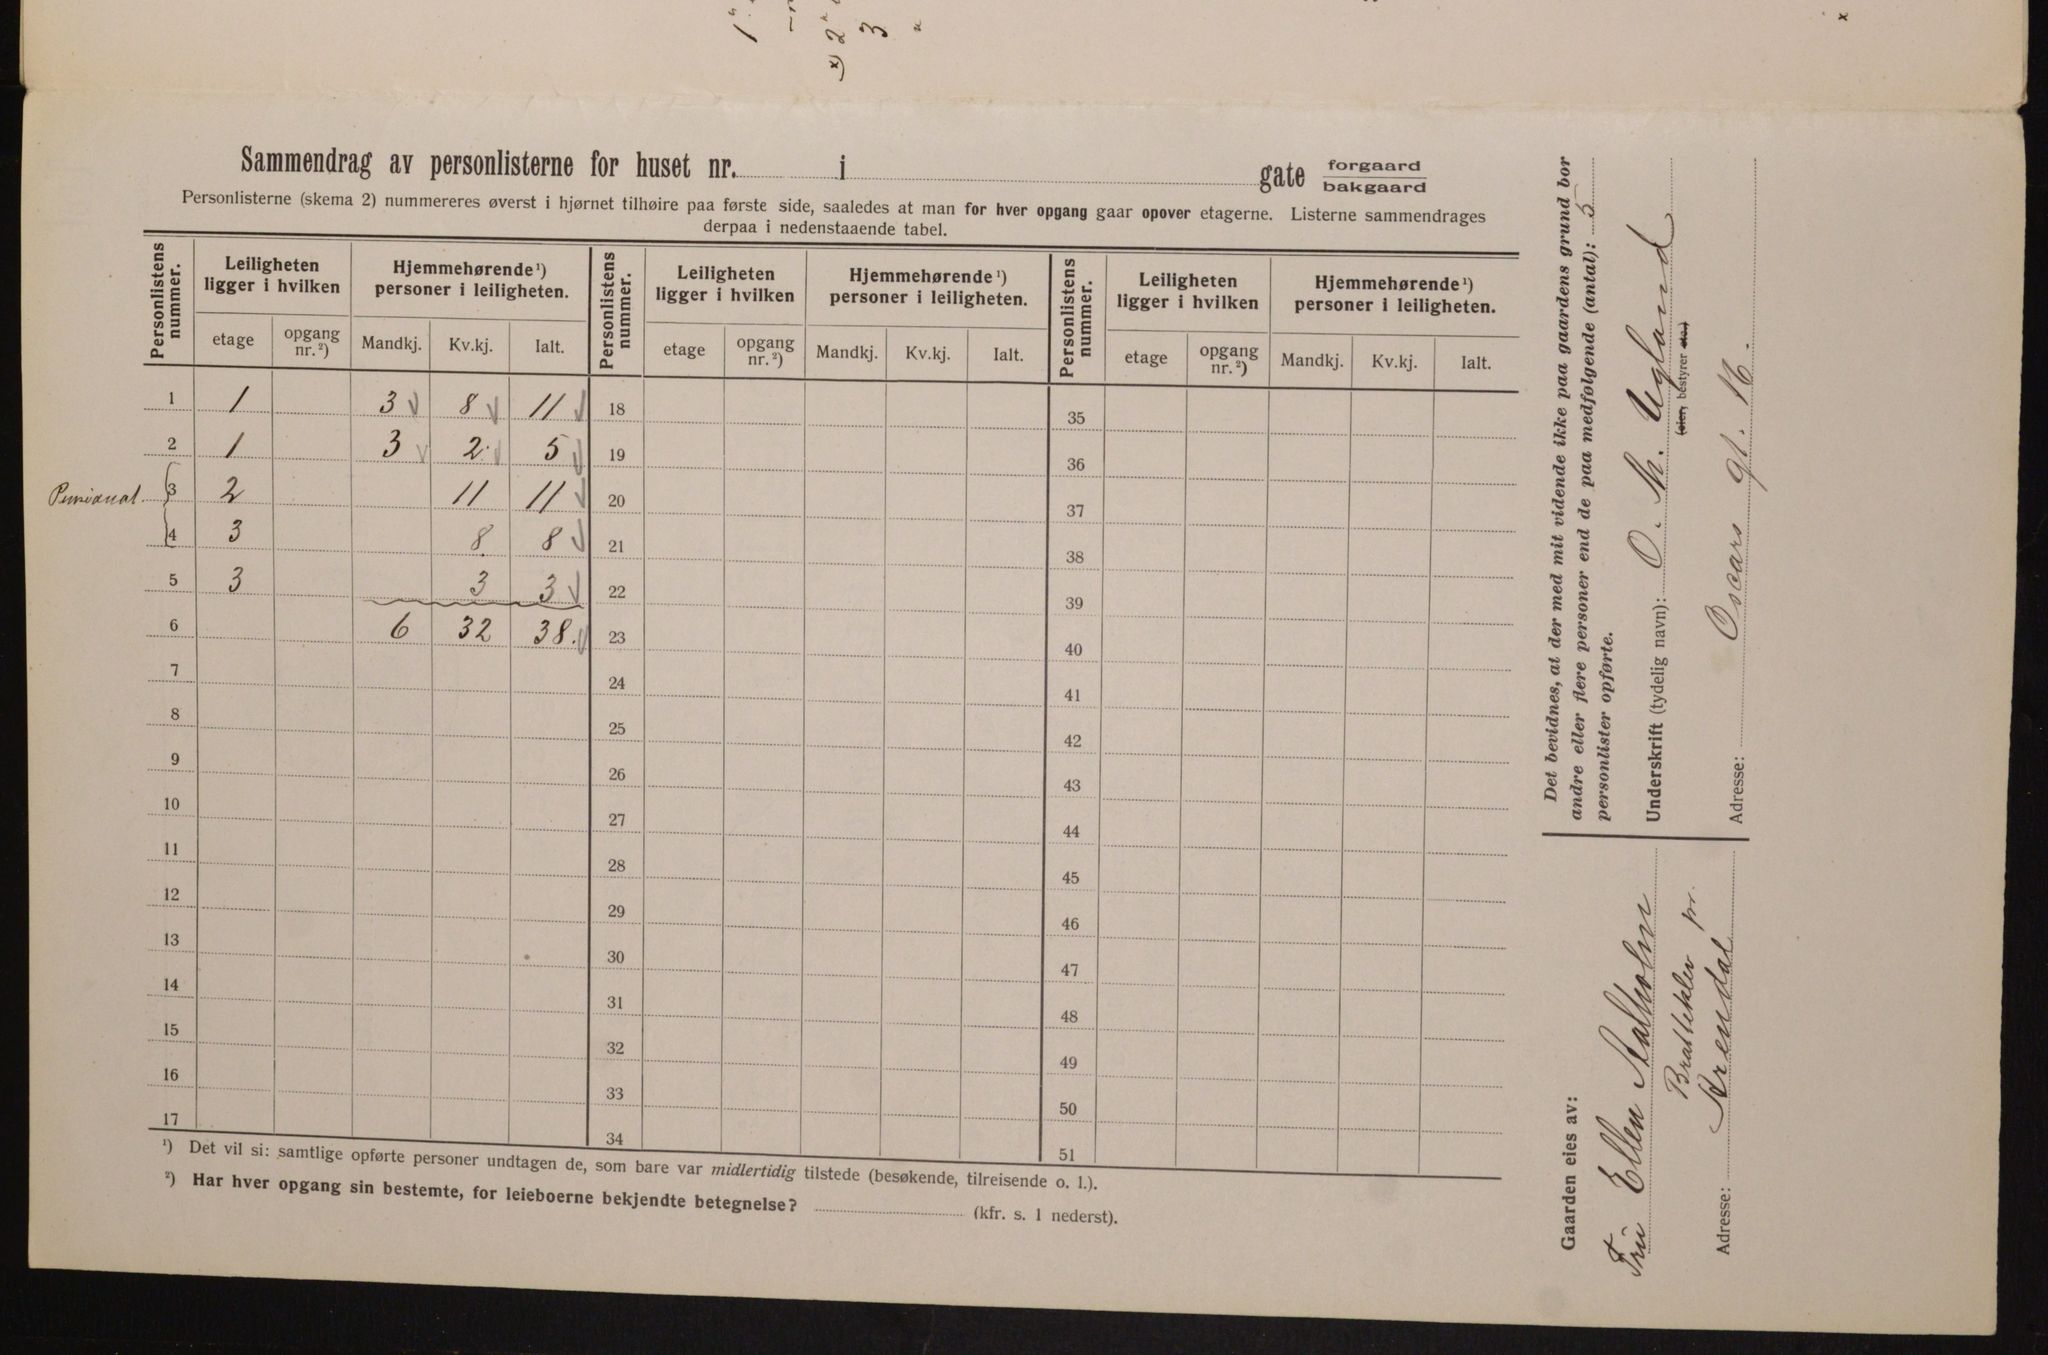 1
2
3
x)
x
Sammendrag av personlisterne for huset nr. i gate forgaard
bakgaard
Personlisterne (skema 2) nummereres øverst i hjørnet tilhøire paa første side, saaledes at man for hver opgang gaar opover etagerne. Listerne sammendrages
derpaa i nedenstaaende tabel.
Personlistens nummer. Leiligheten ligger i hvilken Hjemmehørende ¹) personer i leiligheten. Personlistens nummer. Leiligheten ligger i hvilken Hjemmehørende ¹) personer i leiligheten. Personlistens nummer. Leiligheten ligger i hvilken Hjemmehørende ¹) personer i leiligheten.
etage opgang nr. ²) Mandkj. Kv.kj. Ialt. etage opgang nr. ²) Mandkj. Kv.kj. Ialt. etage opgang nr. ²) Mandkj. Kv.kj. Ialt.
1 1 3 8 11 18 35
2 1 3 2 5 19 36
Pensionat 3 2 11 11 20 37
4 3 8 8 21 38
5 3 3 3 22 39
6 6 32 38. 23 40
7 24 41
8 25 42
9 26 43
10 27 44
11 28 45
12 29 46
13 30 47
14 31 48
15 32 49
16 33 50
17 34 51
¹) Det vil si: samtlige opførte personer undtagen de, som bare var midlertidig tilstede (besøkende, tilreisende o. l.).
²) Har hver opgang sin bestemte, for leieboerne bekjendte betegnelse? (kfr. s. 1 nederst).
Det bevidnes, at der med mit vidende ikke paa gaardens grund bor
andre eller flere personer end de paa medfølgende (antal): 5
personlister opførte.
Underskrift (tydelig navn): O. Th. Ugland
(eier, bestyrer etc.)
Adresse: Oscars gt. 16.
Gaarden eies av:
Fru Ellen Stalholm
Bratteklev pr.
Adresse: Arendal